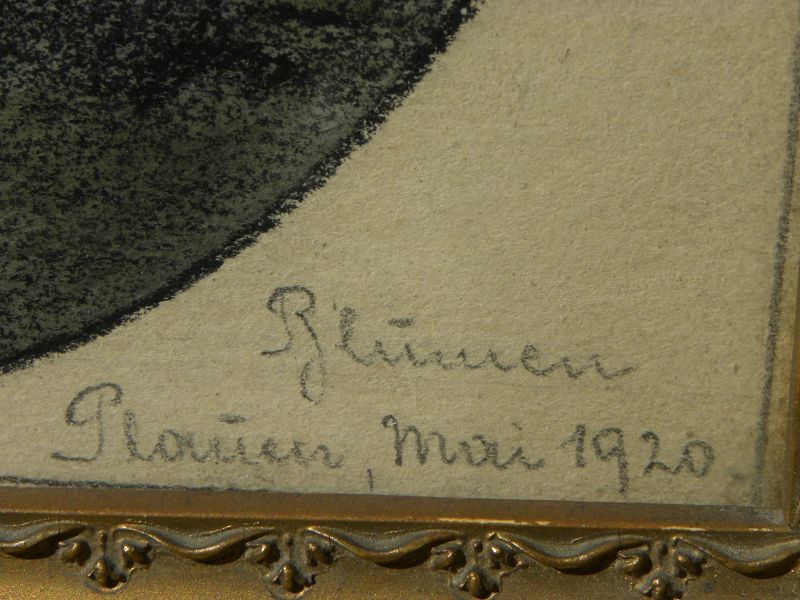 Blumen
Plauen, Mai 1920.